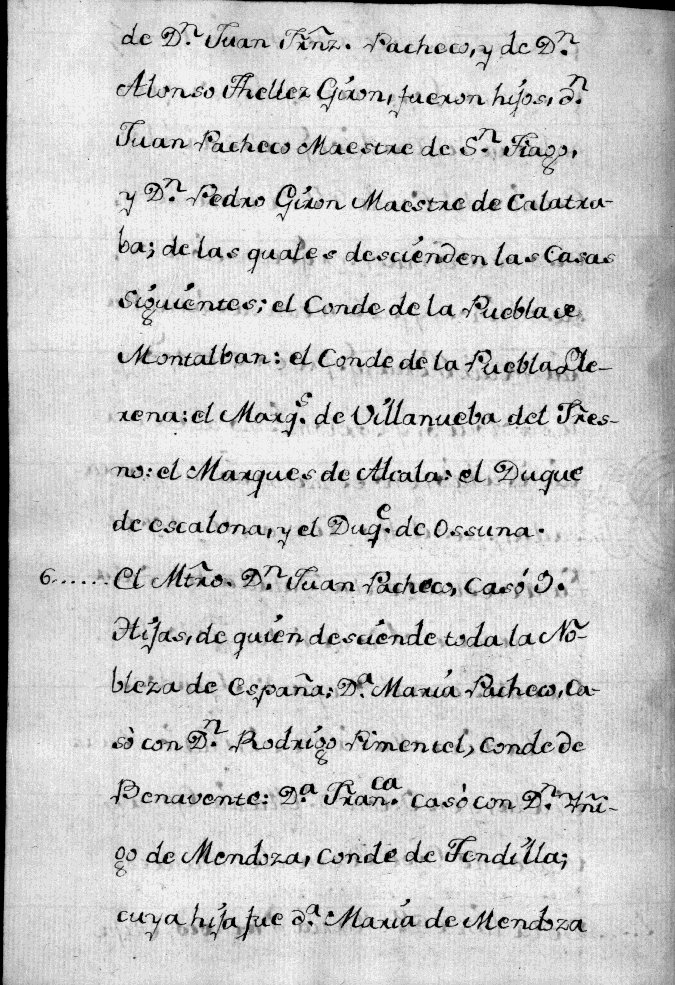 de D.n Juan Frñz. Pacheco, y de D.n
Alonso Thellez Giron, fueron hijos, d.n
Juan Pacheco Maestre de S.n Tiago,
y D.n Pedro Giron Maestre de Calatra-
ba; de las quales descienden las Casas
Siguientes; el Conde de la Puebla de
Montalban: el Conde de la Puebla Lle-
rena: el Marq.s de Villanueba del Fres-
no: el Marques de Alcala: el Duque
de escalona, y el Duq.e de Ossuna.
6...... El Mtro. D.n Juan Pacheco, Casó 9.
Hijas, de quien desciende toda la No-
bleza de España; D.a Maria Pacheco, Ca-
sò con D.n Rodrigo Pimentel, Conde de
Benavente: D.a Fran.ca casò con D.n Yñi-
go de Mendoza, Conde de Tendilla;
cuya hija fue d.a Maria de Mendoza